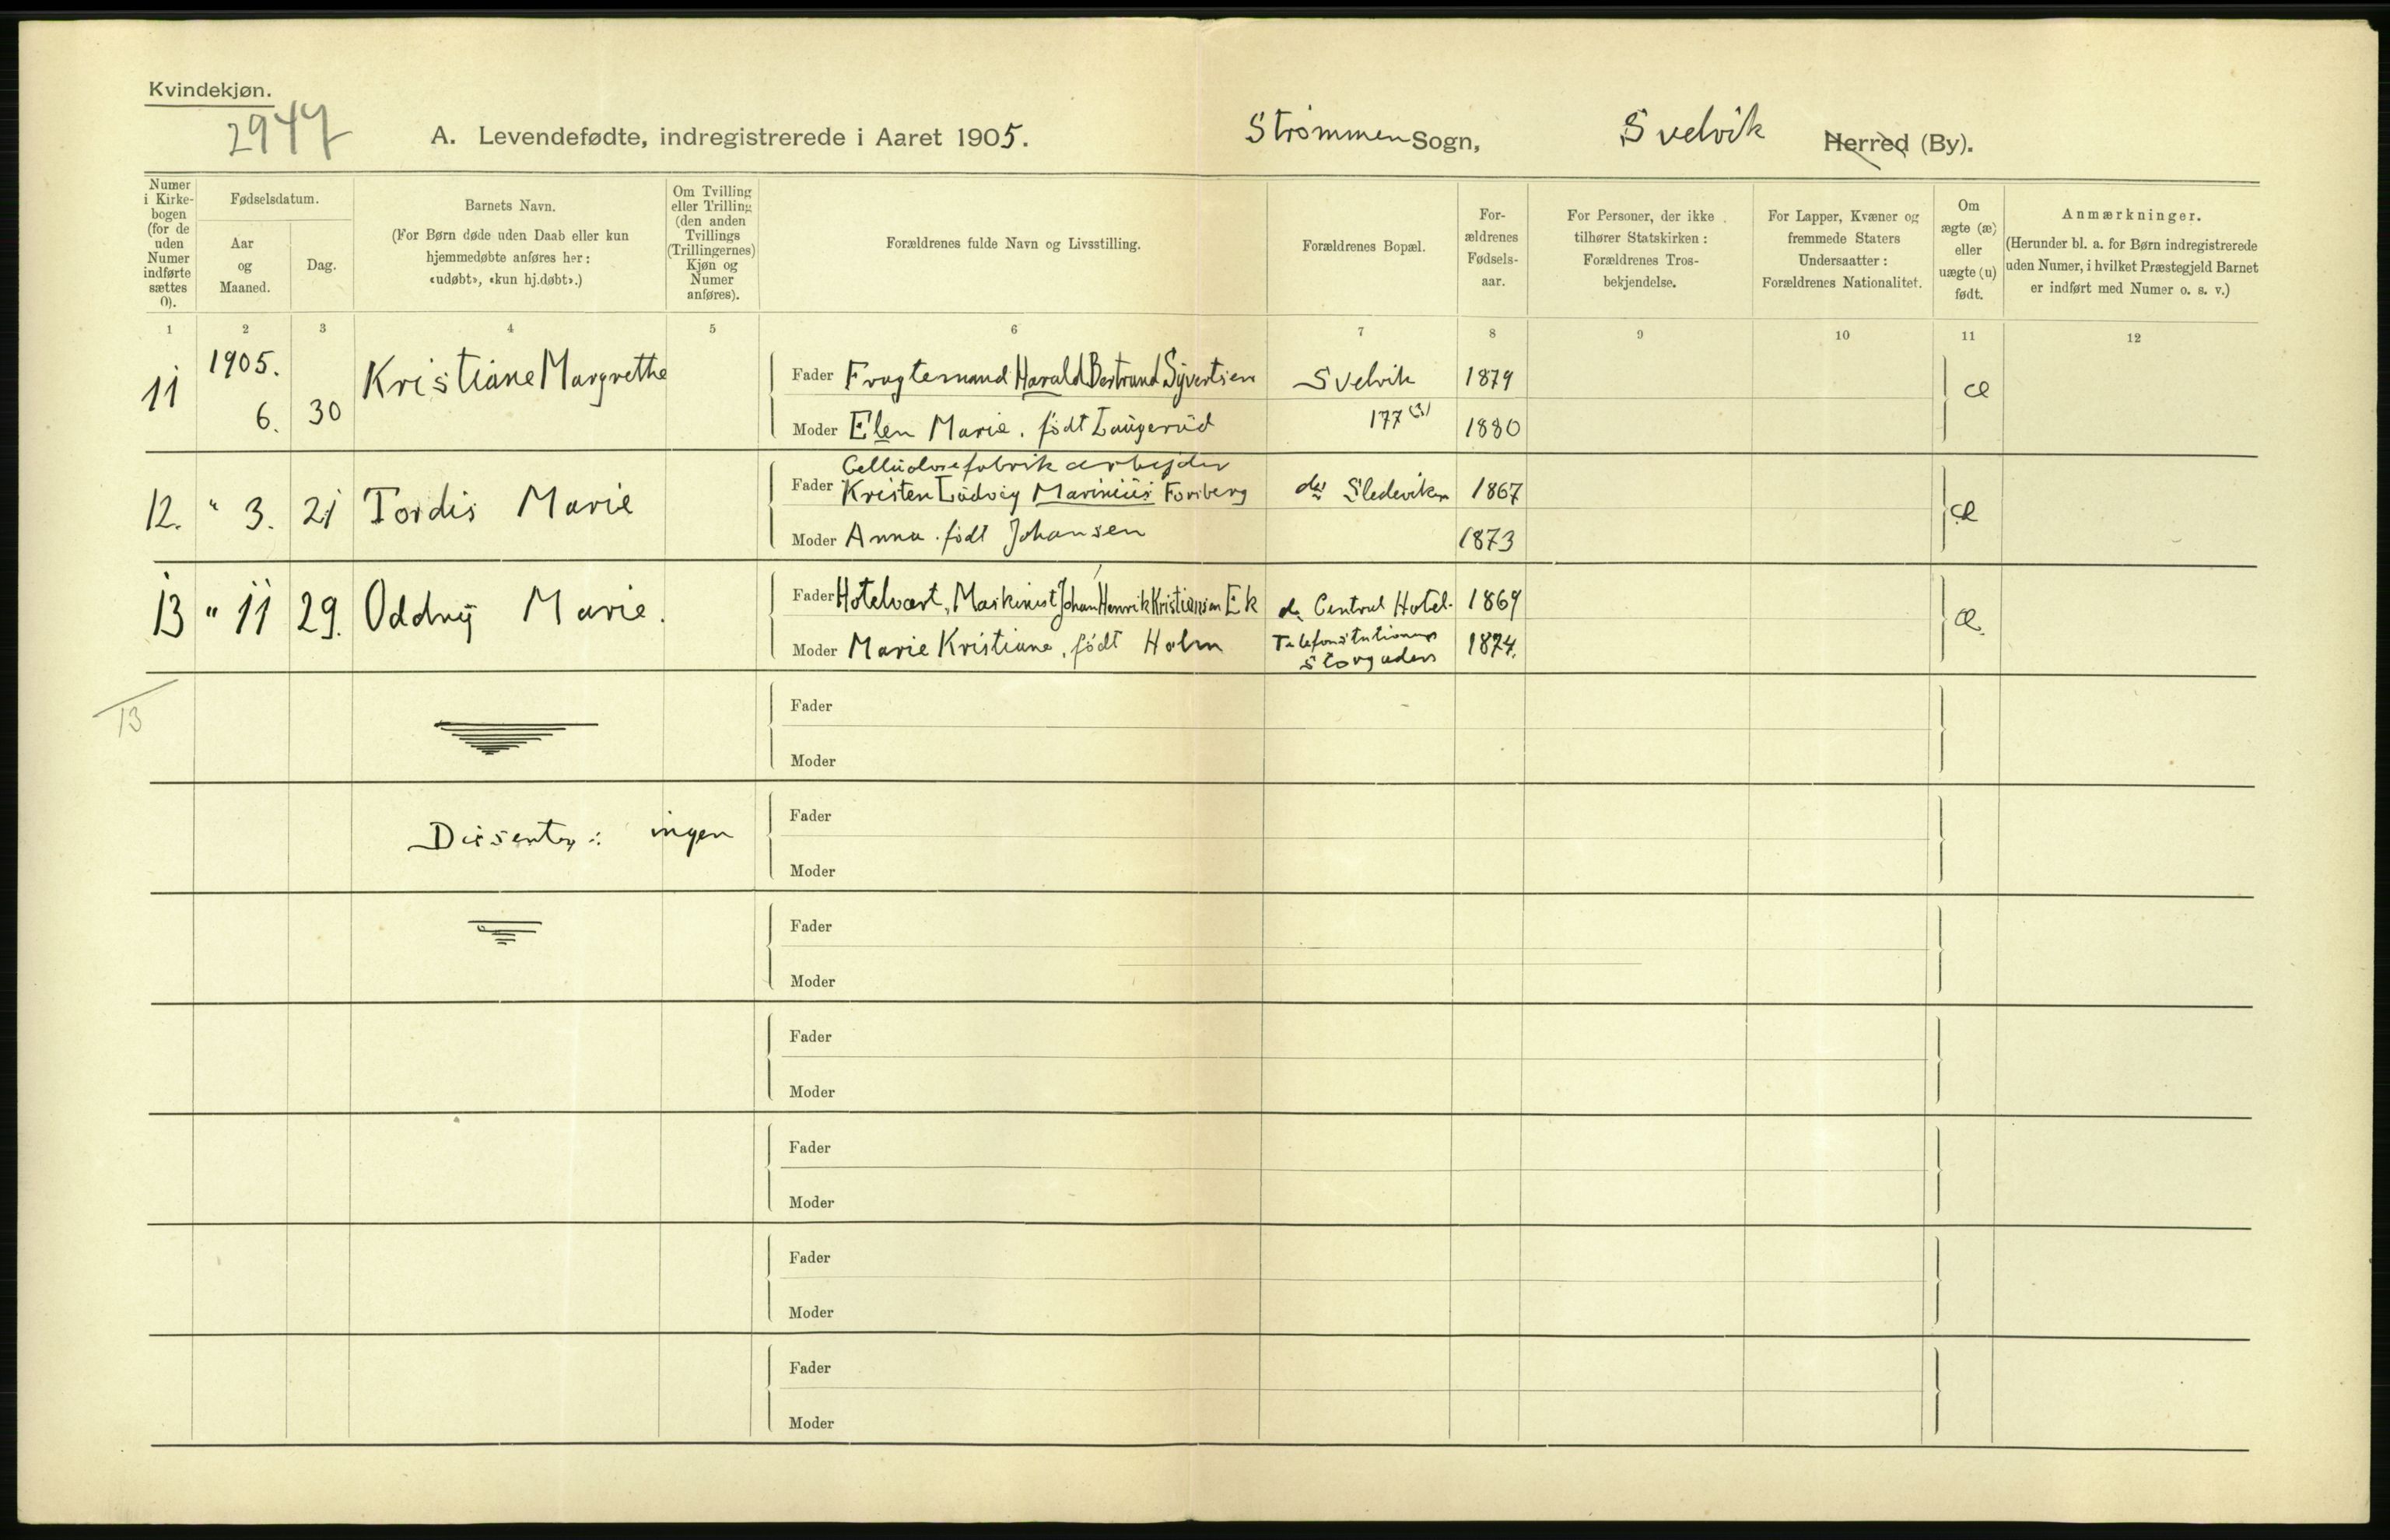 Kvindekjøn.
2947
A. Levendefødte, indregistrerede i Aaret 1905.
Strömmen Sogn, Svelvik Herred (By).
Numer i Kirkebogen (for de uden Numer indførte sættes 0).
Fødselsdatum.
Aar og Maaned.
Dag.
Barnets Navn.
(For Børn døde uden Daab eller kun hjemmedøbte anføres her: «udøbt», «kun hj.døbt».)
Om Tvilling eller Trilling (den anden Tvillings (Trillingernes) Kjøn og Numer anføres).
Forældrenes fulde Navn og Livsstilling.
Forældrenes Bopæl.
For-ældrenes Fødsels-aar.
For Personer, der ikke tilhører Statskirken: Forældrenes Tros-bekjendelse.
For Lapper, Kvæner og fremmede Staters Undersaatter: Forældrenes Nationalitet.
Om ægte (æ) eller uægte (u) født.
Anmærkninger.
(Herunder bl. a. for Børn indregistrerede uden Numer, i hvilket Præstegjeld Barnet er indført med Numer o. s. v.)
1 2 3 4 5 6 7 8 9 10 11 12
11 1905. 6. 30 Kristiane Margrethe Fader Fragtemand Harald Bertrand Syvertsen Svelvik 1879 æ
Moder Elen Marie. född Laugerud 177 (3) 1880
Cellulosefabrikarbejder
12. " 3. 21 Tordis Marie Fader Kristen Ludvig Marinius Forsberg do Sledeviken 1867 æ
Moder Anna. född Johansen 1873
13 " 11 29. Oddny Marie. Fader Hotelvært, Maskinist Johan Henrik Kristiansen Ek do Central Hotel. 1869 æ.
Moder Marie Kristiane, födt Holm Telefonstationen Storgaden 1874.
13
Fader
Moder
Dissenter: ingen
Fader
Moder
Fader
Moder
Fader
Moder
Fader
Moder
Fader
Moder
Fader
Moder